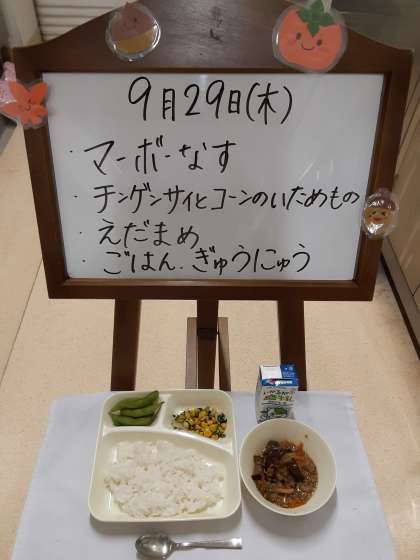 9月29日(木)
・マーボーなす
・チンゲンサイとコーンのいためもの
・えだまめ
・ごはん.ぎゅうにゅう
牛乳